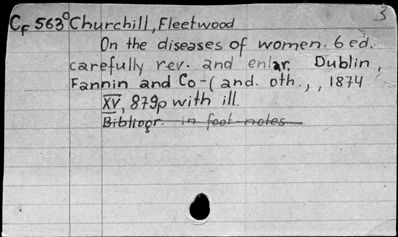 3
CF 563° Churchill, Fleetwood
On the diseases of women. 6 ed.
carefully rev. and enlar. Dublin,
Fannin and Co-(and. oth., , 1874
XV, 879p with ill.
Bibliogr. in foot-notes